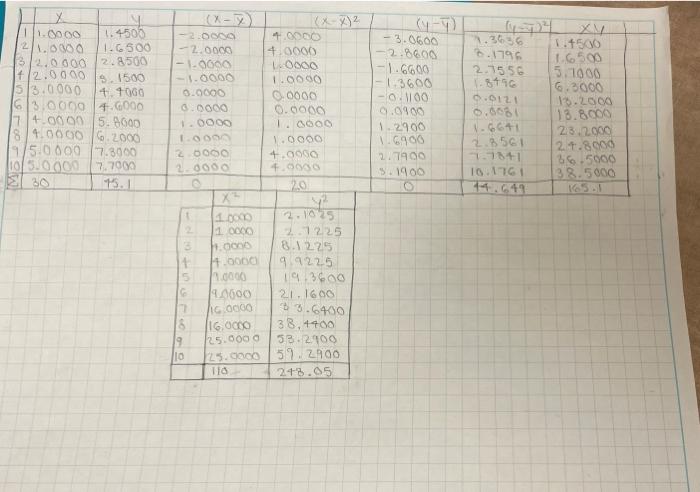 X Y (X-X̄) (X-X̄)2 (Y-Ȳ) (Y-Ȳ)2 XY
1 1.0000 1.4500 -2.0000 4.0000 -3.0600 9.3636 1.4500
2 1.0000 1.6500 -2.0000 4.0000 -2.8600 8.1796 1.6500
3 2.0000 2.8500 -1.0000 1.0000 -1.6600 2.7556 5.7000
4 2.0000 3.1500 -1.0000 1.0000 -1.3600 1.8496 6.3000
5 3.0000 4.4000 0.0000 0.0000 -0.1100 0.0121 13.2000
6 3.0000 4.6000 0.0000 0.0000 0.0900 0.0081 13.8000
7 4.0000 5.8000 1.0000 1.0000 1.2900 1.6641 23.2000
8 4.0000 6.2000 1.0000 1.0000 1.6900 2.8561 24.8000
9 5.0000 7.3000 2.0000 4.0000 2.7900 7.7841 36.5000
10 5.0000 7.7000 2.0000 4.0000 3.1900 10.1761 38.5000
Σ 30 45.1 0 20 0 44.649 165.1
X2 Y2
1 1.0000 2.1025
2 1.0000 2.7225
3 4.0000 8.1225
4 4.0000 9.9225
5 9.0000 19.3600
6 9.0000 21.1600
7 16.0000 33.6400
8 16.0000 38.4400
9 25.0000 53.2900
10 25.0000 59.2900
110 248.05